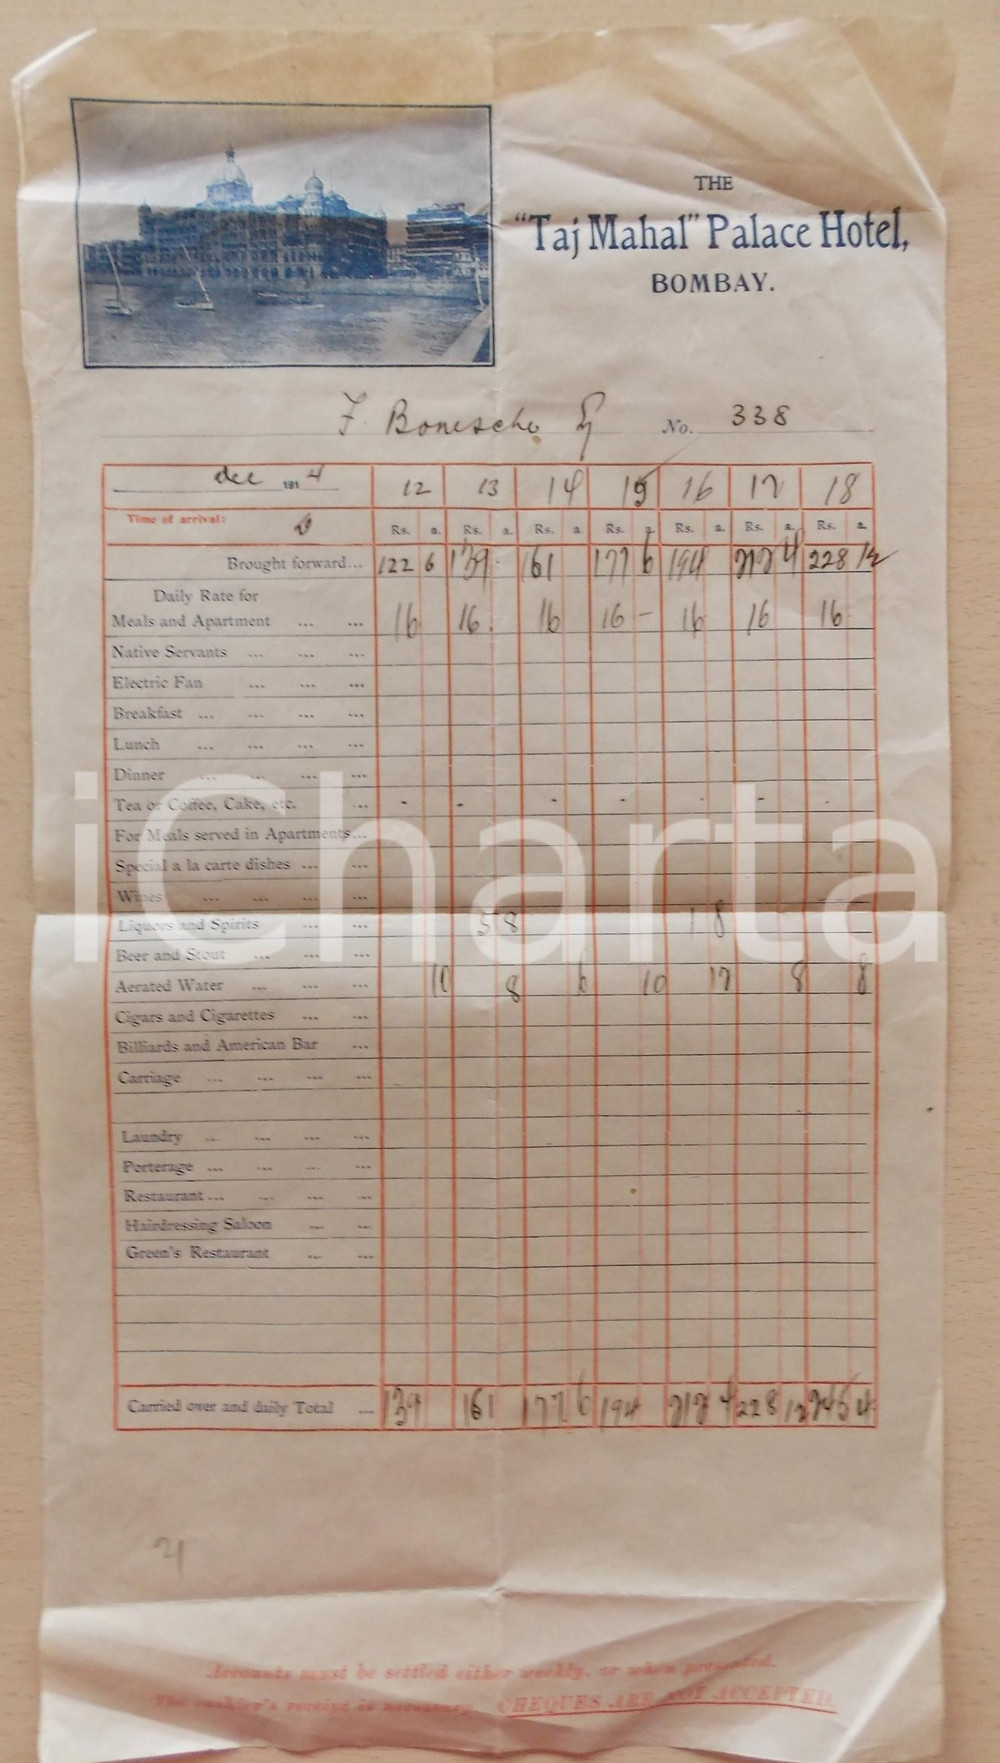 THE
"Taj Mahal" Palace Hotel,
BOMBAY.
F. Esq No. 338
Dec 1914 12 13 14 15 16 17 18
Time of arrival: Rs. a. Rs. a. Rs. a. Rs. a. Rs. a. Rs. a. Rs. a.
Brought forward... 122 6 139 161 177 6 194 212 4 228 12
Daily Rate for
Meals and Apartment ... ... 16 16 16 16 - 16 16 16
Native Servants ... ... ...
Electric Fan ... ... ...
Breakfast ... ... ... ...
Lunch ... ... ... ...
Dinner ... ... ... ...
Tea or Coffee, Cake, etc. ... - - - - - - -
For Meals served in Apartments...
Special a la carte dishes ... ...
Wines ... ... ... ...
Liquors and Spirits ... ... 5 8 1 8
Beer and Stout ... ... ...
Aerated Water ... ... ... 10 8 6 10 12 8 8
Cigars and Cigarettes ... ...
Billiards and American Bar ...
Carriage ... ... ... ...
Laundry ... ... ... ...
Porterage ... ... ... ...
Restaurant ... ... ... ...
Hairdressing Saloon ... ...
Green's Restaurant ... ...
Carried over and daily Total ... 139 161 177 6 194 212 4 228 12 245 4
21
Accounts must be settled either weekly, or when presented.
The cashier's receipt is necessary. CHEQUES ARE NOT ACCEPTED.
iCharta